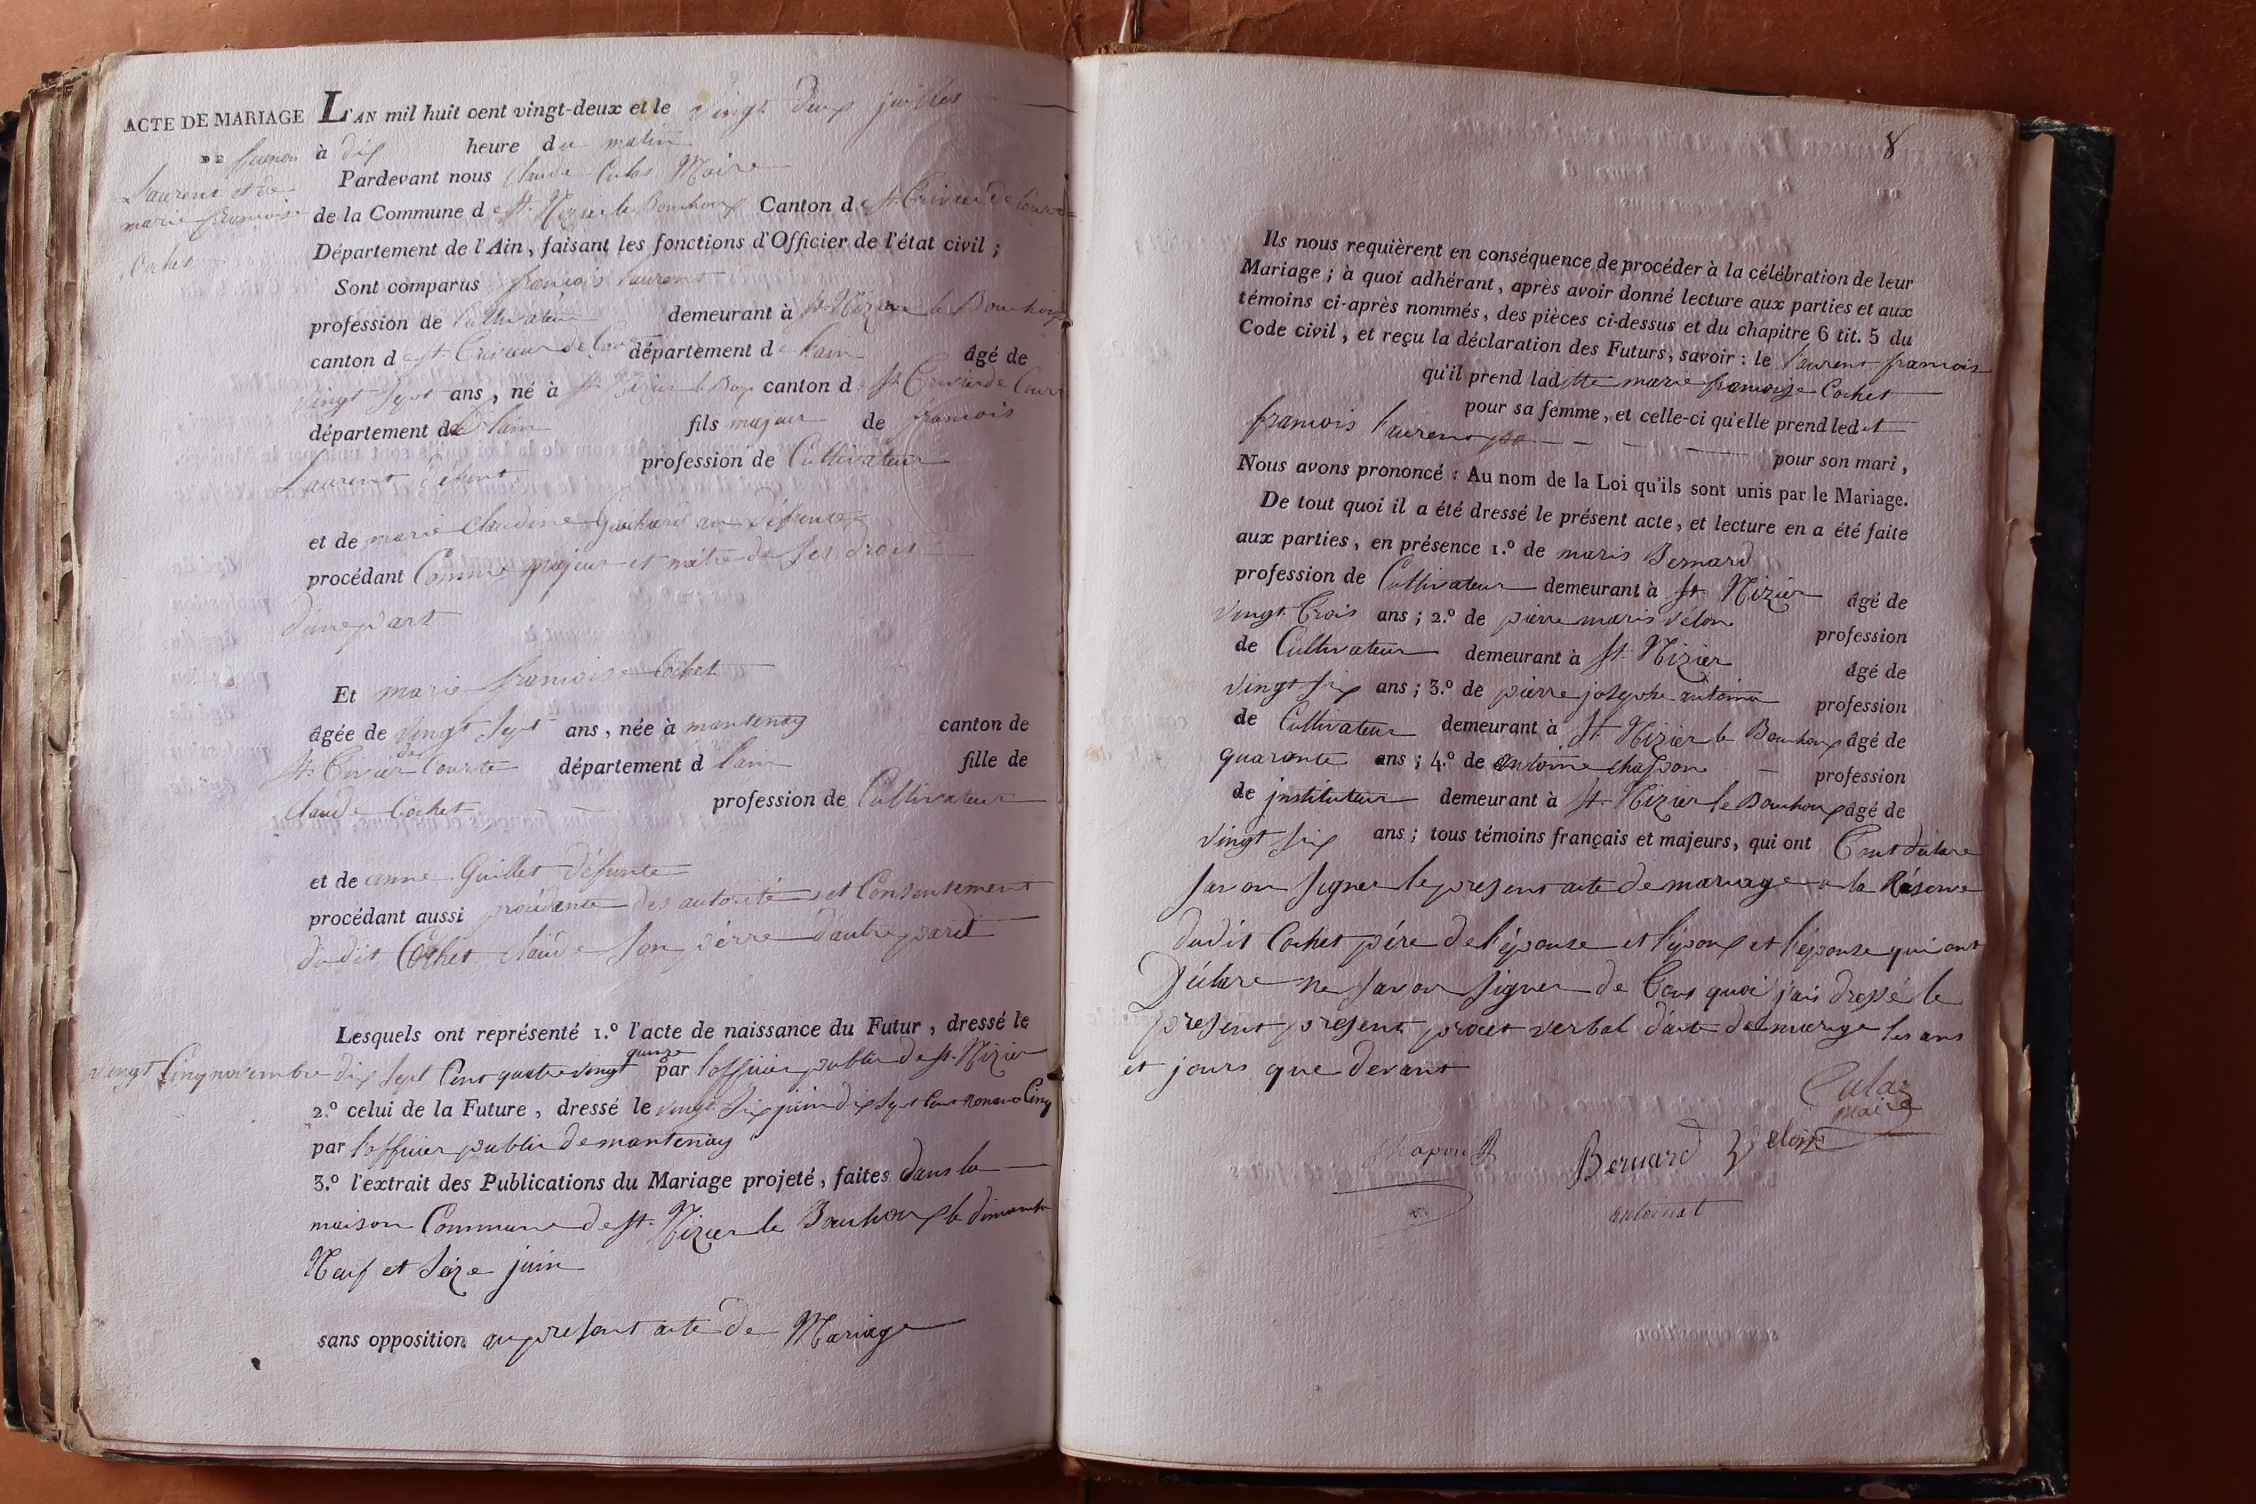 ACTE DE MARIAGE L'AN mil huit cent vingt-deux et le vingt deux juillet
DE
à dix heure du matin
Laurent et de
Pardevant nous Claude Culas Maire
marie francoise
de la Commune de St. Nizier le Bouchoux Canton de St. Trivier de Courte
Cochet
Département de l'Ain, faisant les fonctions d'Officier de l'état civil ;
Sont comparus francois Laurent
profession de Cultivateur demeurant à St. Nizier le Bouchoux
canton de St. Trivier de Cour département de lain âgé de
vingt Sept ans, né à St. Nizier le Bou canton de St. Trivier de Cour
département de lain fils majeur de francois
Laurent défunt profession de Cultivateur
et de marie claudine défunte
procédant Comme majeur et maitre de Ses droit
dune part
Et marie francoise Cochet
âgée de vingt Sept ans, née à mantenay canton de
St. Trivier de Courte département d lain fille de
Claude Cochet profession de Cultivateur
et de anne Guillet défunte
procédant aussi procédente des autorité et Consentement
dudit Cochet claude Son pérre dautre part
Lesquels ont représenté 1.º l'acte de naissance du Futur, dressé le
vingt Cinq novembre dix Sept Cent quatre vingt quinze par lofficier public de St. Nizier
2.º celui de la Future, dressé le vingt Six juin dix Sept Cent nonante Cinq
par lofficier public de mantenay
3.º l'extrait des Publications du Mariage projeté, faites dans la
maison Commune de St. Nizier le Bouchoux le dimanche
Neuf et Séze juin
sans opposition au present acte de Mariage
8
Ils nous requièrent en conséquence de procéder à la célébration de leur
Mariage ; à quoi adhérant, après avoir donné lecture aux parties et aux
témoins ci-après nommés, des pièces ci-dessus et du chapitre 6 tit. 5 du
Code civil, et reçu la déclaration des Futurs, savoir : le Laurent francois
qu'il prend laditte marie francoise Cochet
pour sa femme, et celle-ci qu'elle prend ledit
francois Laurent pour son mari,
Nous avons prononcé : Au nom de la Loi qu'ils sont unis par le Mariage.
De tout quoi il a été dressé le présent acte, et lecture en a été faite
aux parties, en présence 1.º de maris Bernard
profession de Cultivateur demeurant à St. Nizier âgé de
vingt trois ans ; 2.º de pierre maris Velon profession
de Cultivateur demeurant à St. Nizier âgé de
vingt Six ans ; 3.º de pierre josephe antoina profession
de Cultivateur demeurant à St. Nizier le Bouchoux âgé de
quarante ans ; 4.º de antoine chapon profession
de instituteur demeurant à St. Nizier le Bouchoux âgé de
vingt Six ans ; tous témoins français et majeurs, qui ont tout déclare
Savoir Signer le present acte de mariage a la Réserve
dudit Cochet pére de l'épouse et l'époux et l'épouse qui ont
Déclare ne Savoir Signer de tous quoi j'ais dressé le
present present procet verbal d'acte de mariage les ans
et jours que devant
Culaz
maire
Bernard Velon
chapon
antoinat